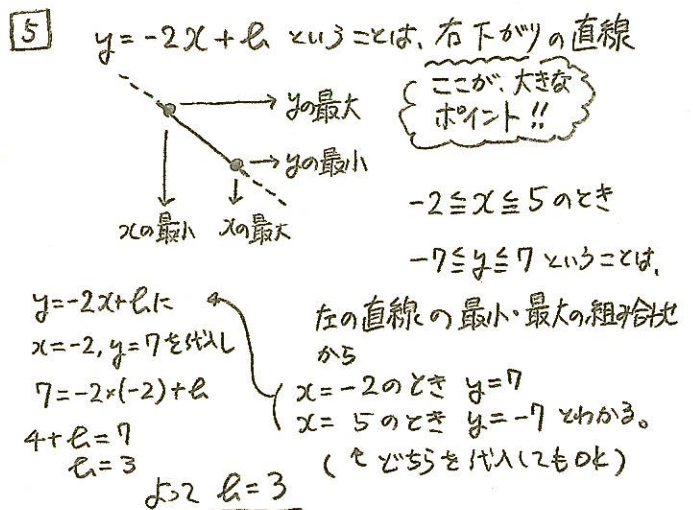 5
y=-2x+b ということは、右下がりの直線
ここが、大きな
ポイント!!
yの最大
yの最小
xの最小 xの最大
-2≦x≦5のとき
-7≦y≦7ということは、
左の直線の最小・最大の組み合わせ
から
x=-2のとき y=7
x= 5のとき y=-7 とわかる。
(↑どちらを代入してもOK)
y=-2x+bに
x=-2, y=7を代入し
7=-2×(-2)+b
4+b=7
b=3
よって b=3